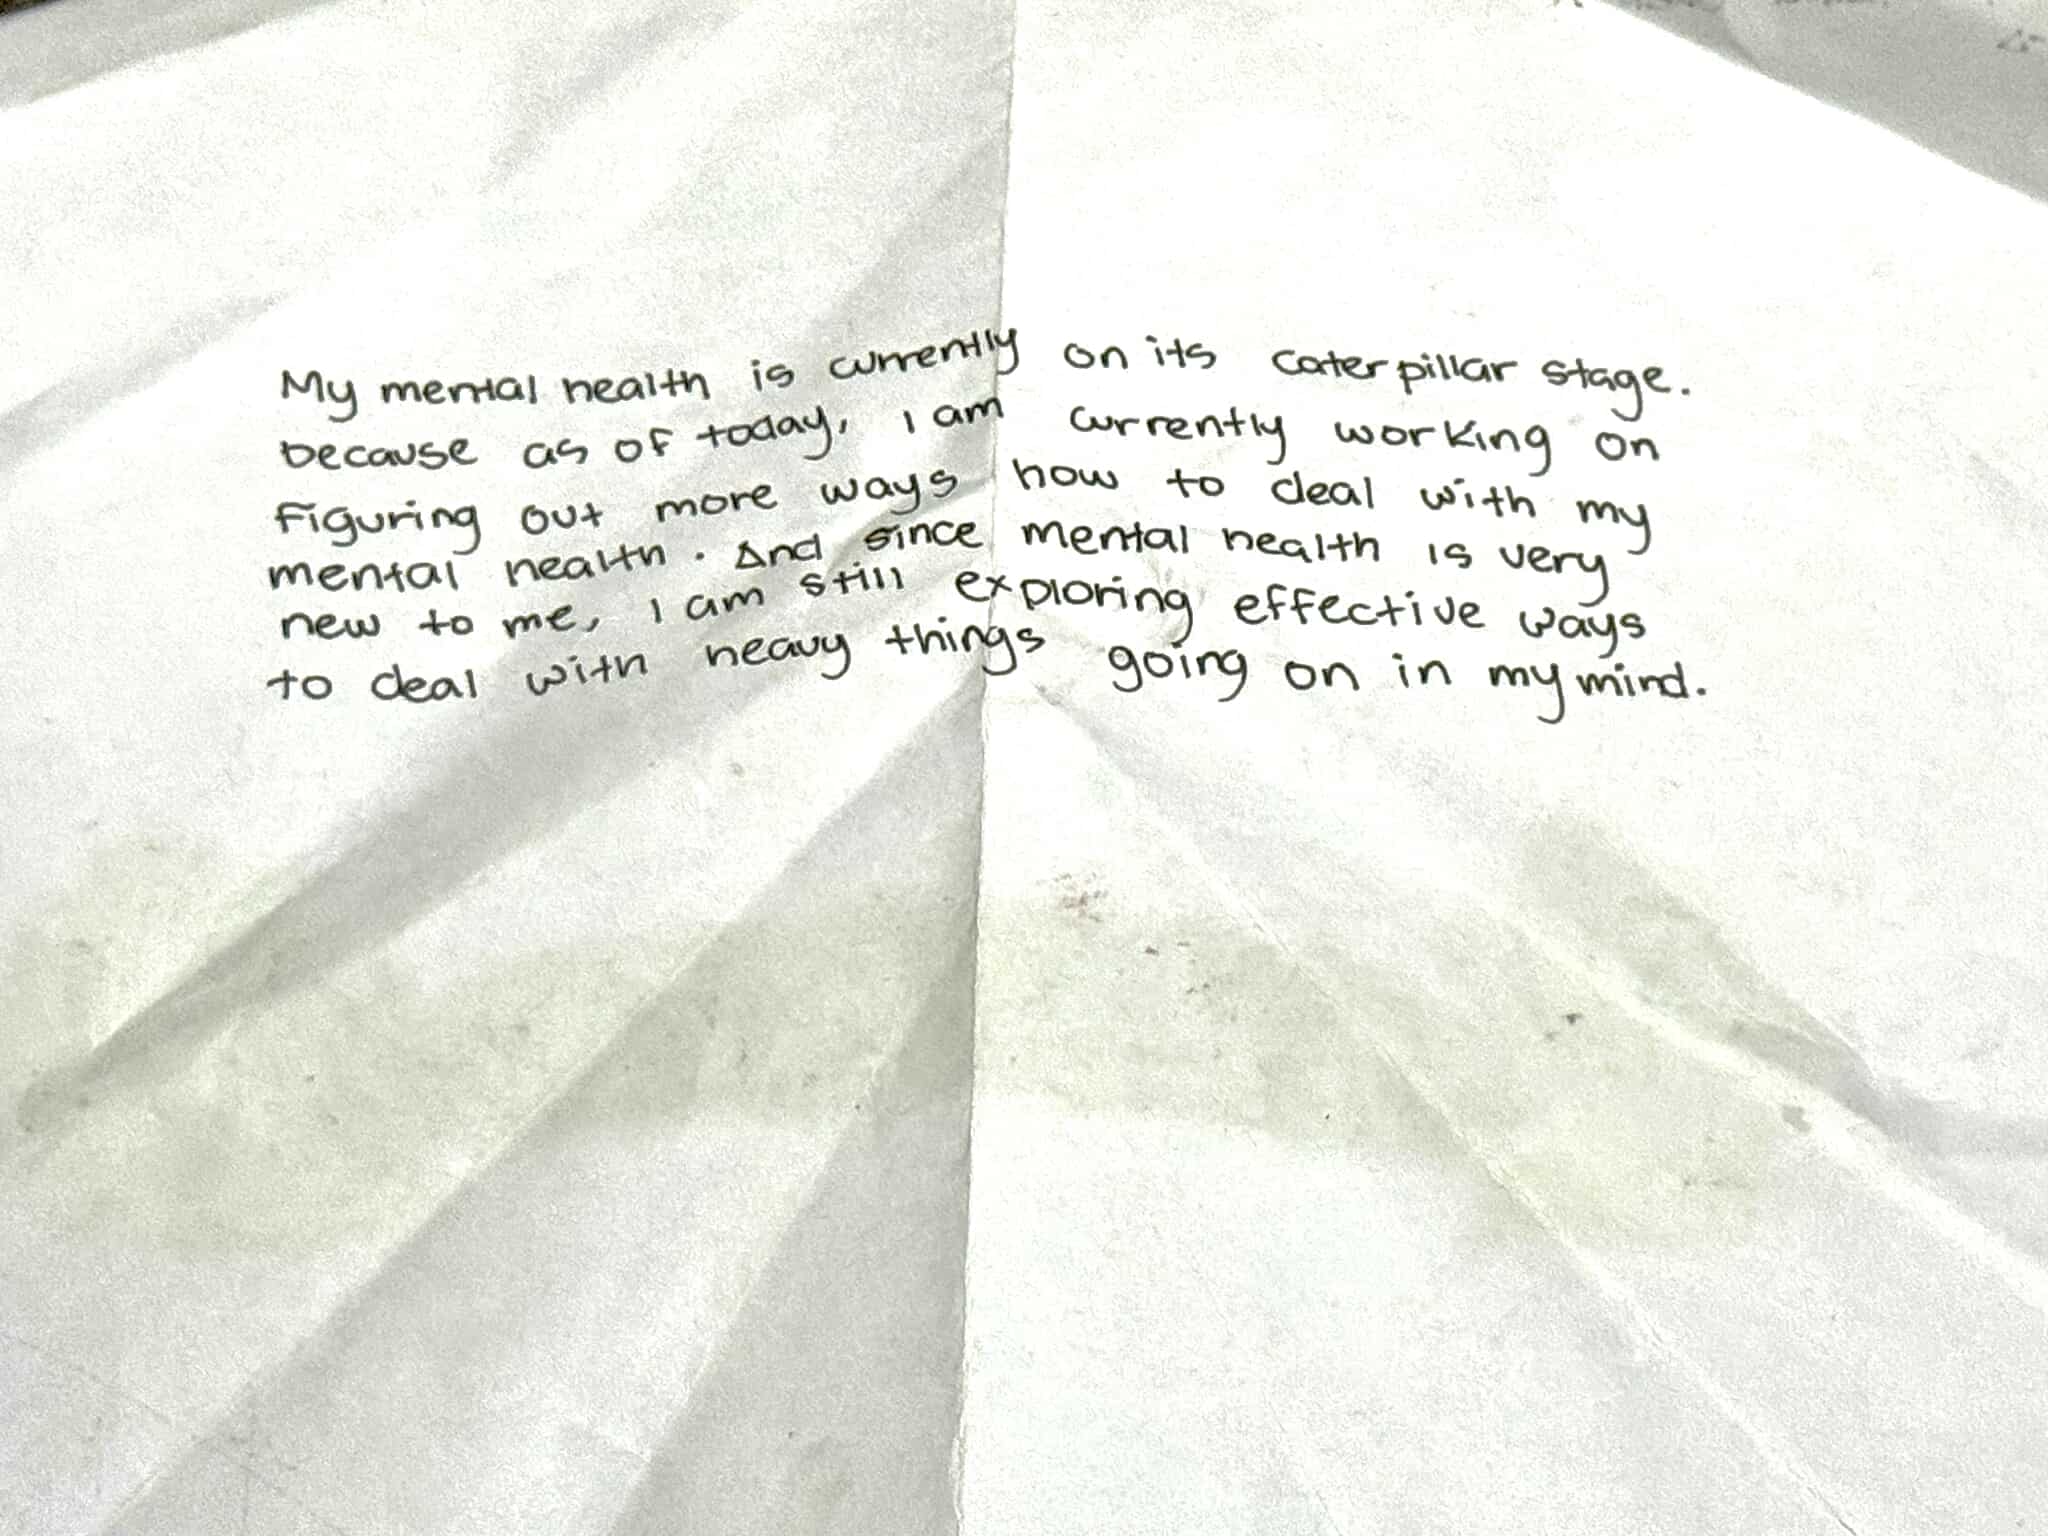 My mental health is currently on its caterpillar stage.
because as of today, I am currently working on
figuring out more ways how to deal with my
mental health. And since mental health is very
new to me, I am still exploring effective ways
to deal with heavy things going on in my mind.